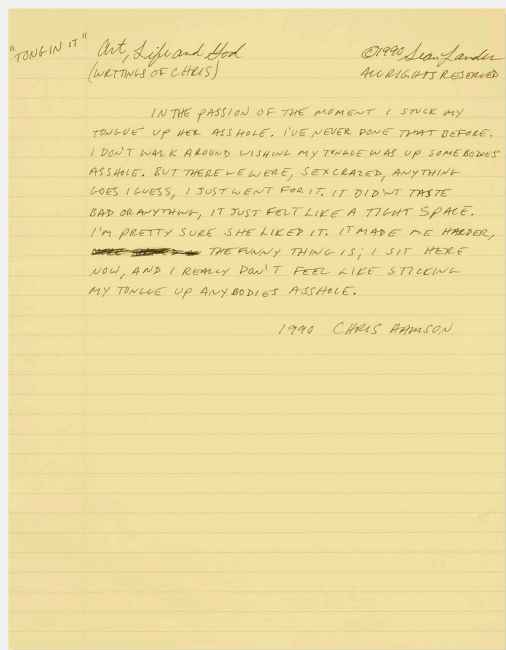 "TONG IN IT" Art, Life and God ©1990 Sean Landers
(WRITINGS OF CHRIS) ALL RIGHTS RESERVED
IN THE PASSION OF THE MOMENT I STUCK MY
TONGUE UP HER ASSHOLE. I'VE NEVER DONE THAT BEFORE.
I DON'T WALK AROUND WISHING MY TONGUE WAS UP SOMEBODYS
ASSHOLE. BUT THERE WE WERE, SEXCRAZED, ANYTHING
GOES I GUESS, I JUST WENT FOR IT. IT DID'NT TASTE
BAD OR ANYTHING, IT JUST FELT LIKE A TIGHT SPACE.
I'M PRETTY SURE SHE LIKED IT. IT MADE ME HARDER,
THE FUNNY THING IS; I SIT HERE
NOW, AND I REALLY DON'T FEEL LIKE STICKING
MY TONGUE UP ANYBODIES ASSHOLE.
1990 CHRIS HAMSON